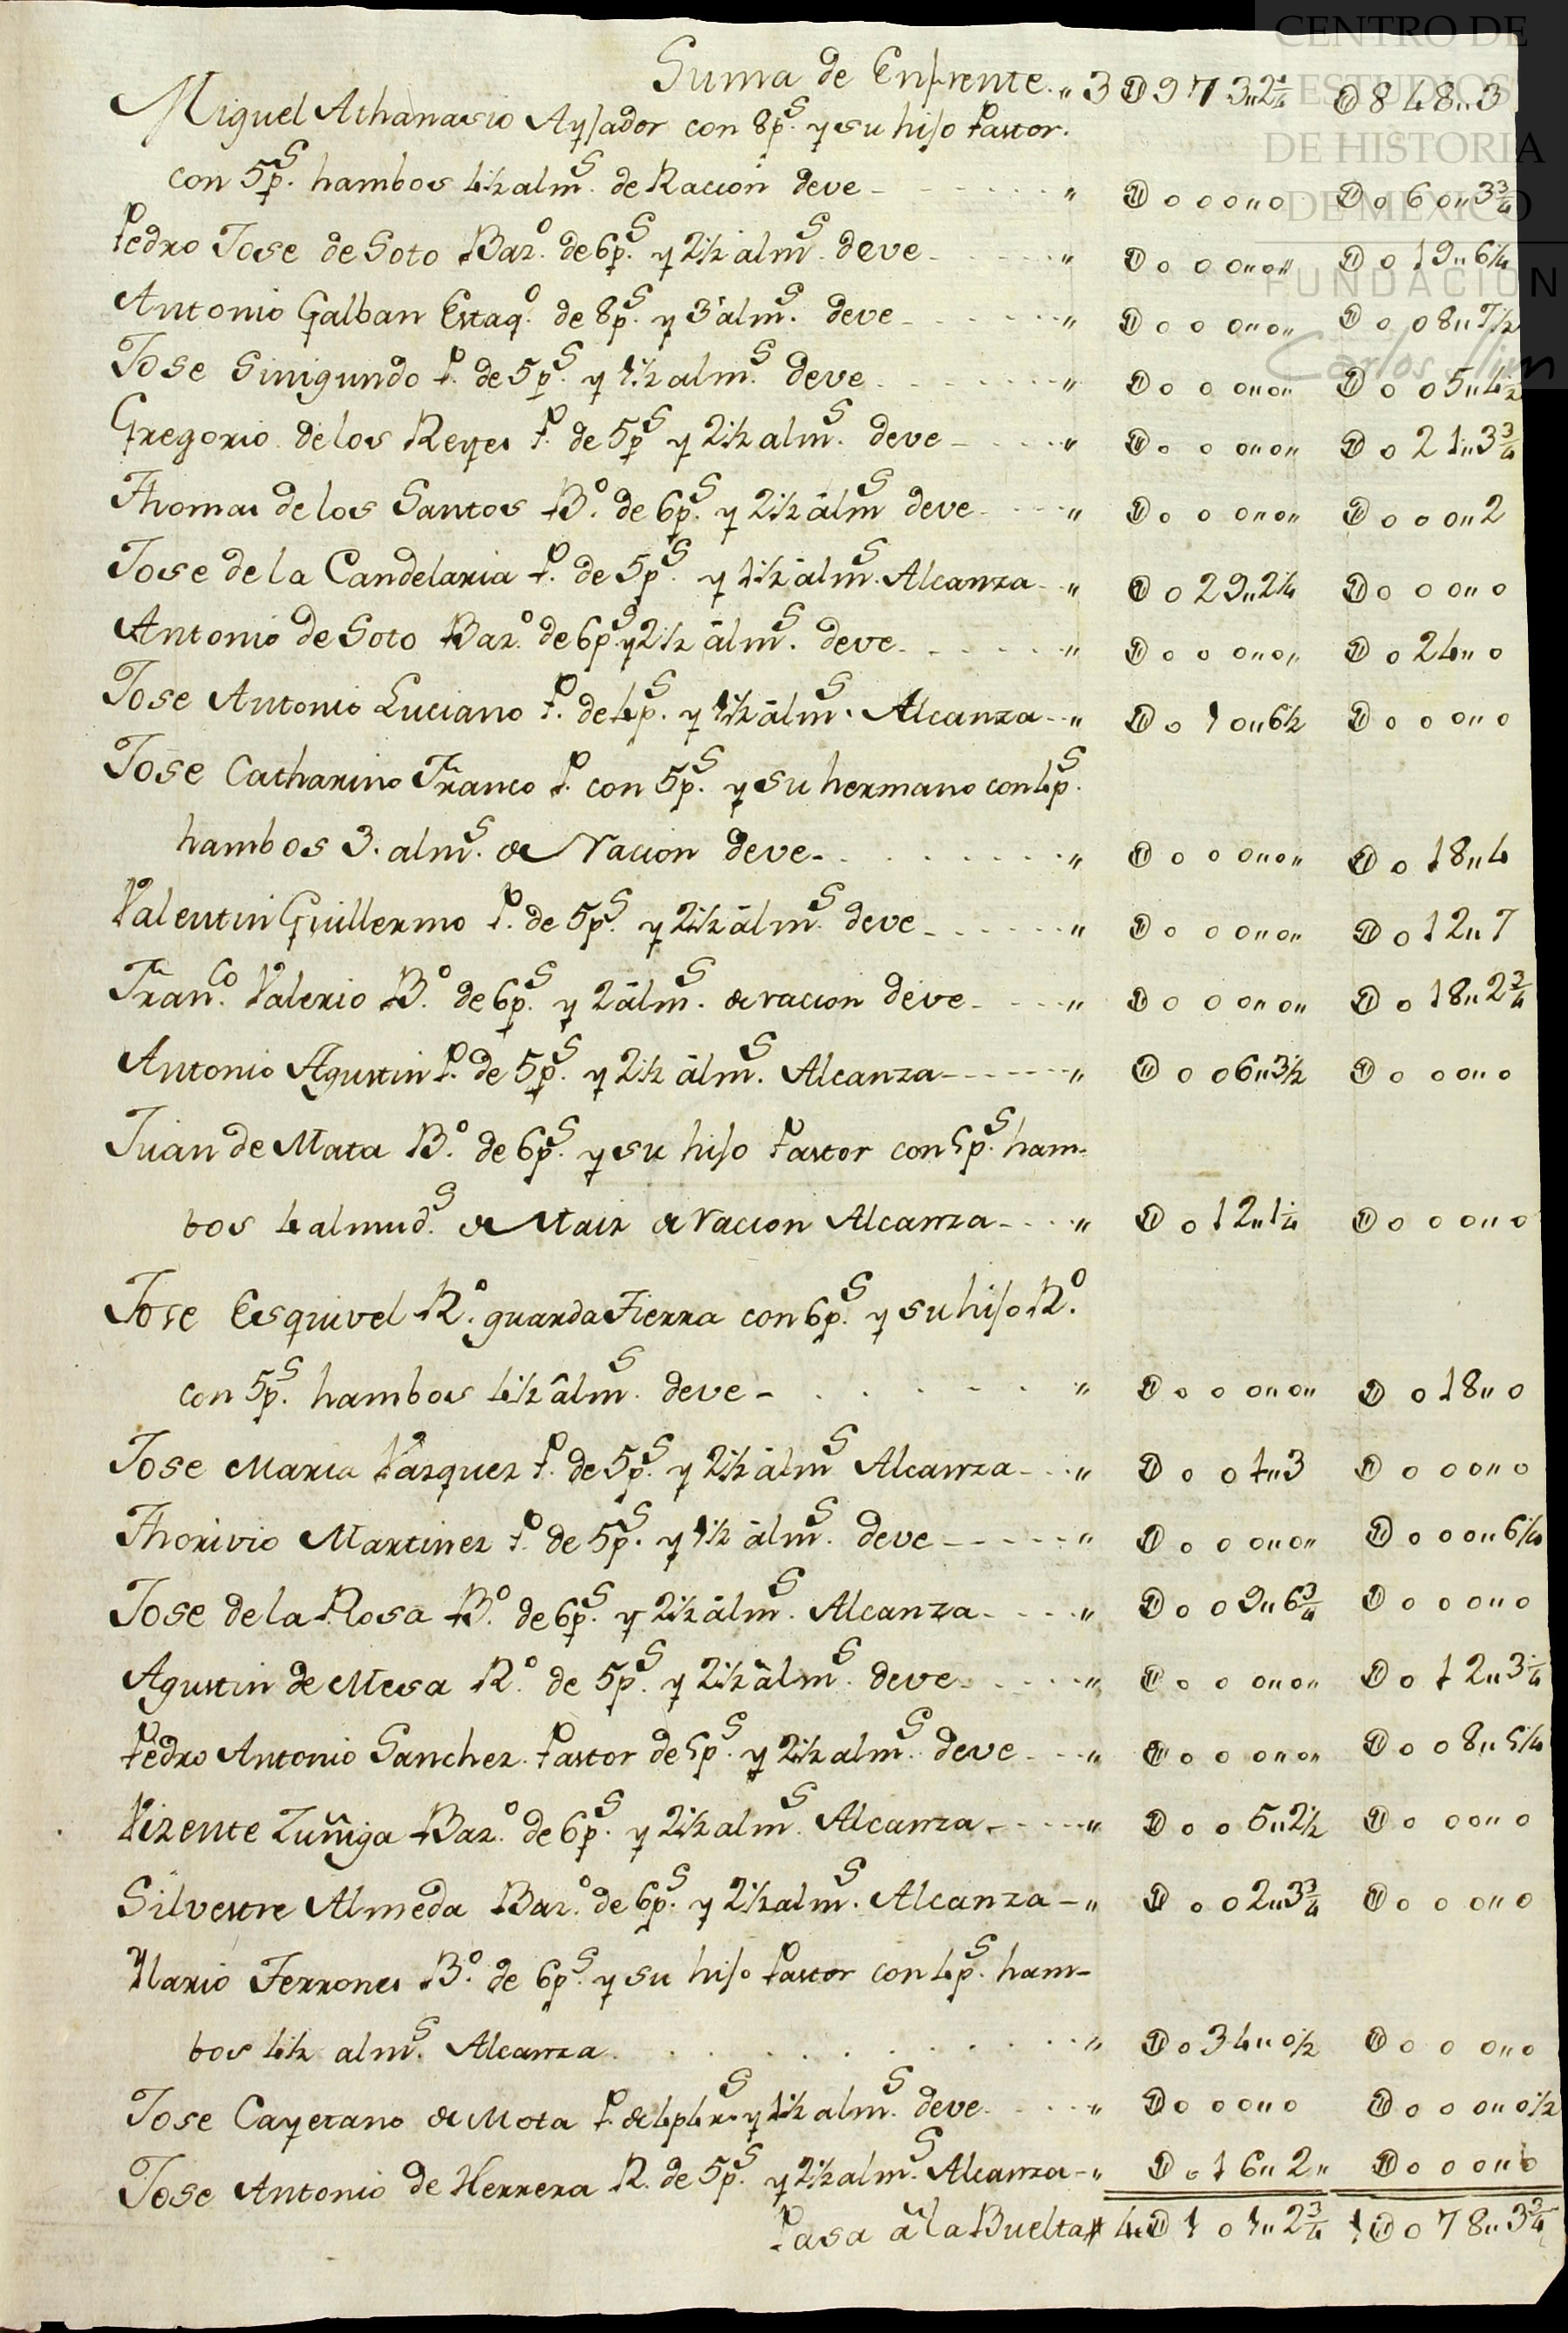 CENTRO DE
ESTUDIOS
DE HISTORIA
DE MEXICO
FUNDACIÓN
Carlos Slim
Suma de Enfrente. " 3 U 973 " 2 1/4 U 848 " 3
Miguel Athanasio Ayjador con 8p.s y su hijo Pastor.
con 5p.s hambos 4 1/2 alm.s de Racion deve - " U 000 " 0 U 060 " 3 3/4
Pedro Jose de Soto Baz.o de 6p.s y 2 1/2 alm.s deve - " U 000 " 0 " U 019 " 6 1/4
Antonio Galban Estaq.o de 8p.s y 3 alm.s deve - " U 000 " 0 " U 008 " 7 1/2
Jose Sinigundo P.o de 5p.s y 1 1/2 alm.s deve " U 000 " 0 " U 005 " 4 1/2
Gregorio de los Reyes P.o de 5p.s y 2 1/2 alm.s deve - " U 000 " 0 " U 021 " 3 3/4
Thomas de los Santos B.o de 6p.s y 2 1/2 alm.s deve - " U 000 " 0 " U 000 " 2
Jose de la Candelaria P.o de 5p.s y 1 1/2 alm.s Alcanza - " U 029 " 2 1/4 U 000 " 0
Antonio de Soto Baz.o de 6p.s y 2 1/2 alm.s deve - " U 000 " 0 " U 024 " 0
Jose Antonio Luciano P.o de 4p.s y 1 1/2 alm.s Alcanza - " U 010 " 6 1/2 U 000 " 0
Jose Catharino Franco P.o con 5p.s y su hermano con 4p.s
hambos 3. alm.s de racion deve - " U 000 " 0 " U 018 " 4
Valentin Guillermo P.o de 5p.s y 2 1/2 alm.s deve - " U 000 " 0 " U 012 " 7
Fran.co Valerio B.o de 6p.s y 2 alm.s de racion deve - " U 000 " 0 " U 018 " 2 3/4
Antonio Agustin P.o de 5p.s y 2 1/2 alm.s Alcanza - " U 006 " 3 1/2 U 000 " 0
Juan de Mata B.o de 6p.s y su hijo Pastor con 5p.s ham-
bos 4 almud.s de Maiz de racion Alcanza - " U 012 " 1 1/4 U 000 " 0
Jose Esquivel R.o guarda Tierra con 6p.s y su hijo R.o
con 5p.s hambos 4 1/2 alm.s deve - " U 000 " 0 " U 018 " 0
Jose Maria Vazquez P.o de 5p.s y 2 1/2 alm.s Alcanza - " U 001 " 3 U 000 " 0
Thorivio Martinez P.o de 5p.s y 1 1/2 alm.s deve - " U 000 " 0 " U 000 " 6 1/4
Jose de la Rosa B.o de 6p.s y 2 1/2 alm.s Alcanza - " U 009 " 6 3/4 U 000 " 0
Agustin de Mesa R.o de 5p.s y 2 1/2 alm.s deve - " U 000 " 0 " U 012 " 3 1/4
Pedro Antonio Sanchez. Pastor de 5p.s y 2 1/2 alm.s deve - " U 000 " 0 " U 008 " 5 1/4
Vizente Zuñiga Baz.o de 6p.s y 2 1/2 alm.s Alcanza - " U 005 " 2 1/2 U 000 " 0
Silvestre Almeda Baz.o de 6p.s y 2 1/2 alm.s Alcanza - " U 002 " 3 3/4 U 000 " 0
Ylario Terrones B.o de 6p.s y su hijo Pastor con 4p.s ham-
bos 4 1/2 alm.s Alcanza " U 034 " 0 1/2 U 000 " 0
Jose Cayetano de Mota P. de 4p 4r.s y 1 1/2 alm.s deve " U 000 " 0 U 000 " 0 1/2
Jose Antonio de Herrera R. de 5p.s y 2 1/2 alm.s Alcanza - " U 016 " 2 " U 000 " 0
Pasa à la Buelta # 4 U 101 " 2 3/4 1 U 078 " 3 3/4